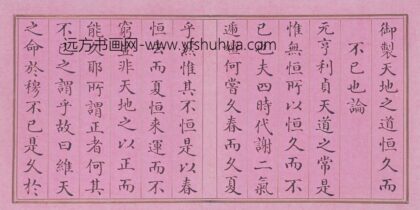 御製天地之道恒久而
不已也論
元亨利貞天道之常是
惟無恒所以恒久而不
已已夫四時代謝二氣
遞遷何嘗久春而久夏
乎然惟其不恒是以春
恒去而夏恒來運而不
窮並非天地之以正而
能久耶所謂正者何其
不已之謂乎故曰維天
之命於穆不已是久於
远方书画网-www.yfshuhua.com